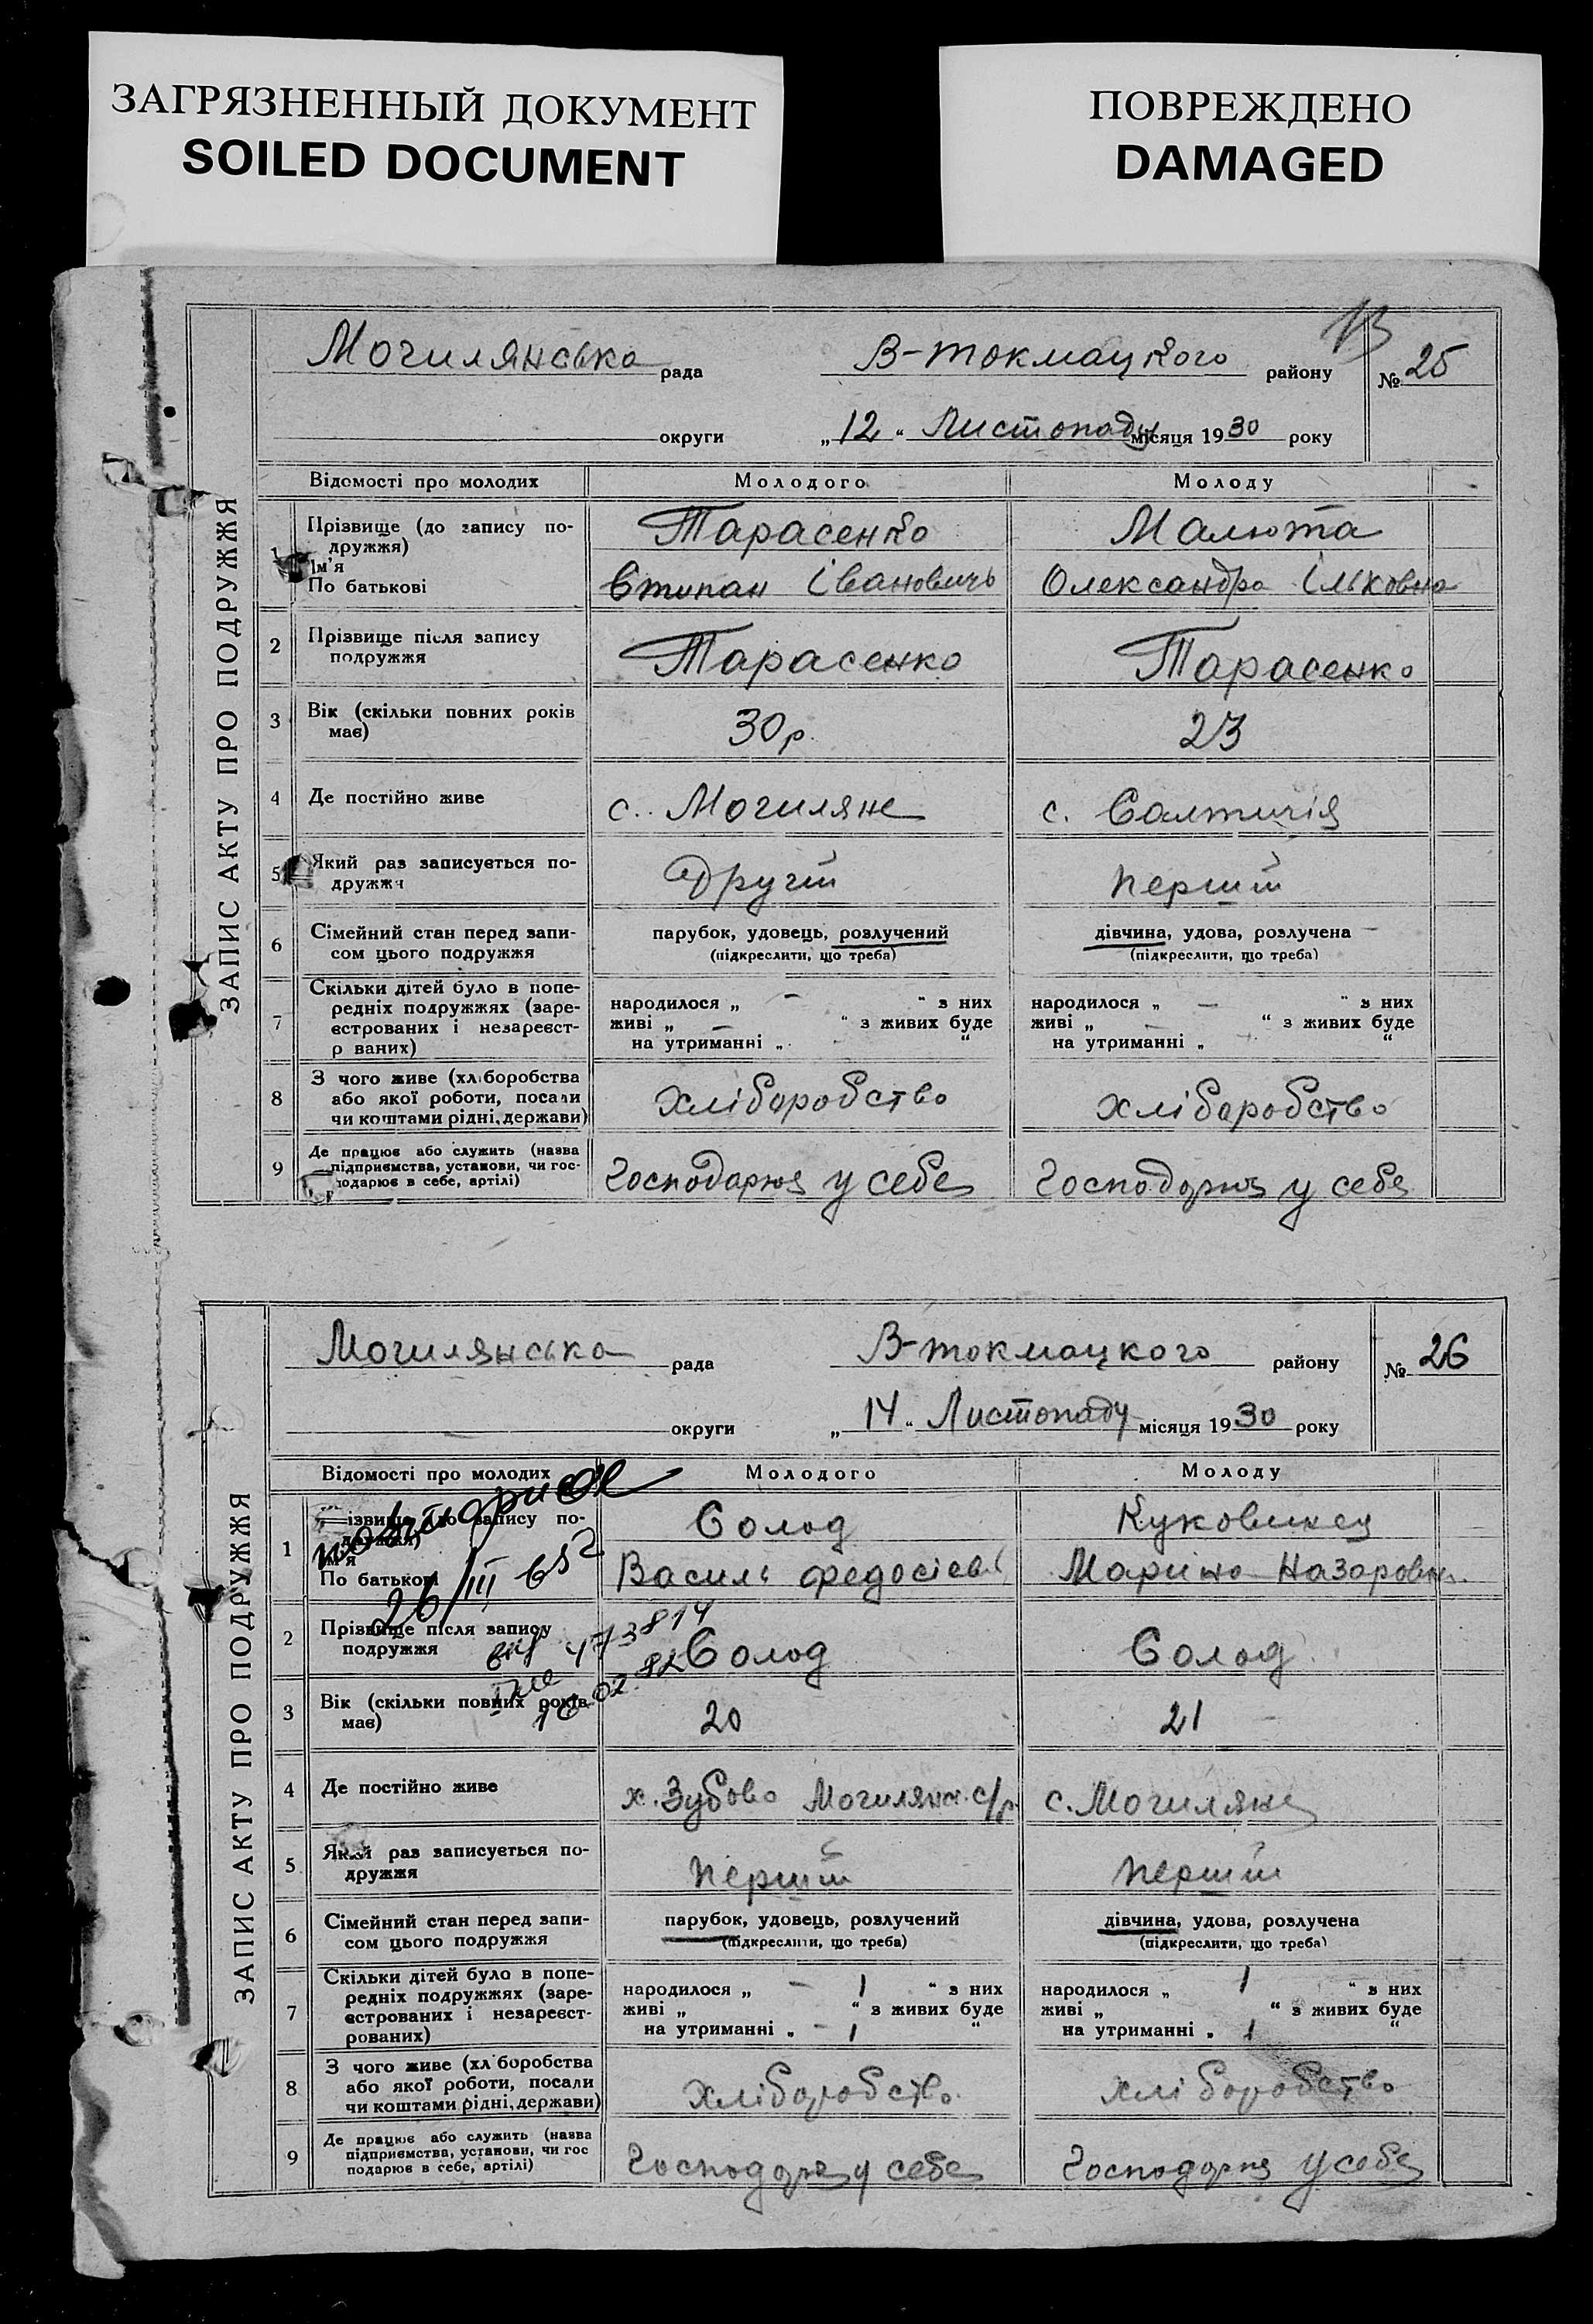 ЗАГРЯЗНЕННЫЙ ДОКУМЕНТ
SOILED DOCUMENT
ПОВРЕЖДЕНО
DAMAGED
ЗАПИС АКТУ ПРО ПОДРУЖЖЯ
13
Могилянська рада В-токмацького району № 25
округи „12“ Листопаду місяця 1930 року
Відомості про молодих Молодого Молоду
1 Прізвище (до запису по- Тарасенко Малюта
дружжя)
Ім’я
По батькові Степан Івановичь Олександра Ільковна
2 Прізвище після запису Тарасенко Тарасенко
подружжя
3 Вік (скільки повних років 30 р. 23
має)
4 Де постійно живе с. Могиляне с. Салтичія
5 Який раз записується по- другий перший
дружжя
6 Сімейний стан перед запи- парубок, удовець, розлучений дівчина, удова, розлучена
сом цього подружжя (підкреслити, що треба) (підкреслити, що треба)
7 Скільки дітей було в попе-
редніх подружжях (заре- народилося „ — “ з них народилося „ — “ з них
єстрованих і незареєст- живі „ — “ з живих буде живі „ — “ з живих буде
р ваних) на утриманні „ “ на утриманні „ — “
8 З чого живе (хліборобства
або якої роботи, посади хліборобство хліборобство
чи коштами рідні, держави)
9 Де працює або служить (назва
підприємства, установи, чи гос- Господарює у себе Господорює у себе
подарює в себе, артілі)
ЗАПИС АКТУ ПРО ПОДРУЖЖЯ
Могилянська рада В-токмацкого району № 26
округи „14“ Листопаду місяця 1930 року
Відомості про молодих Молодого Молоду
1 Прізвище (до запису по- Солод Куковинец
дружжя)
Ім’я
По батькові Василь Федосієв Маріна Назаровна
26/III 65
2 Прізвище після запису Солод Солод
подружжя
473814
3 Вік (скільки повних років 20 21
має)
02.82
4 Де постійно живе х. Зубово Могилянс. с/р с. Могиляне
5 Який раз записується по- перший перший
дружжя
6 Сімейний стан перед запи- парубок, удовець, розлучений дівчина, удова, розлучена
сом цього подружжя (підкреслити, що треба) (підкреслити, що треба)
7 Скільки дітей було в попе-
редніх подружжях (заре- народилося „ — 1 “ з них народилося „ 1 “ з них
єстрованих і незареєст- живі „ “ з живих буде живі „ “ з живих буде
рованих) на утриманні „ — 1 “ на утриманні „ 1 “
8 З чого живе (хліборобства
або якої роботи, посади хліборобство хліборобство
чи коштами рідні, держави)
9 Де працює або служить (назва
підприємства, установи, чи гос Господорює у себе Господорює у себе
подарює в себе, артілі)